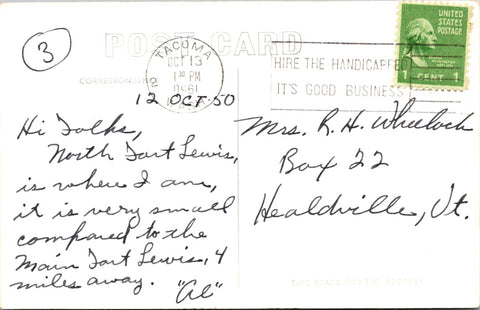 3
POST CARD
CORRESPONDENCE
TACOMA
OCT 13
1 30 PM
UNITED
STATES
POSTAGE
1 CENT 1
HIRE THE HANDICAPPED
IT'S GOOD BUSINESS
12 OCT 50
Hi Folks,
North Fort Lewis,
is where I am,
it is very small
compared to the
Main Fort Lewis, 4
miles away. "Al"
Mrs. R. H. Wheelock
Box 22
Healdville, Vt.
THIS SPACE FOR THE ADDRESS